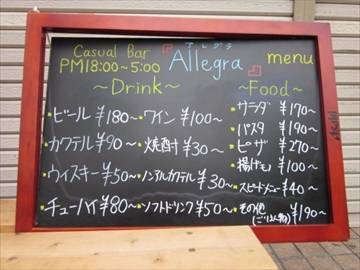 Casual Bar
アレグラ
Allegra
menu
PM18:00~5:00
~Drink~
・ビール ¥180~
・カクテル ¥90~
・ウィスキー ¥50~
・チューハイ ¥80~
・ワイン ¥100~
・焼酎 ¥30~
・ノンアルカクテル ¥30~
・ソフトドリンク ¥50~
~Food~
・サラダ ¥170~
・パスタ ¥190~
・ピザ ¥270~
・揚げもの ¥100~
・スピードメニュー ¥40~
・その他 ¥190~
(ごはん物)